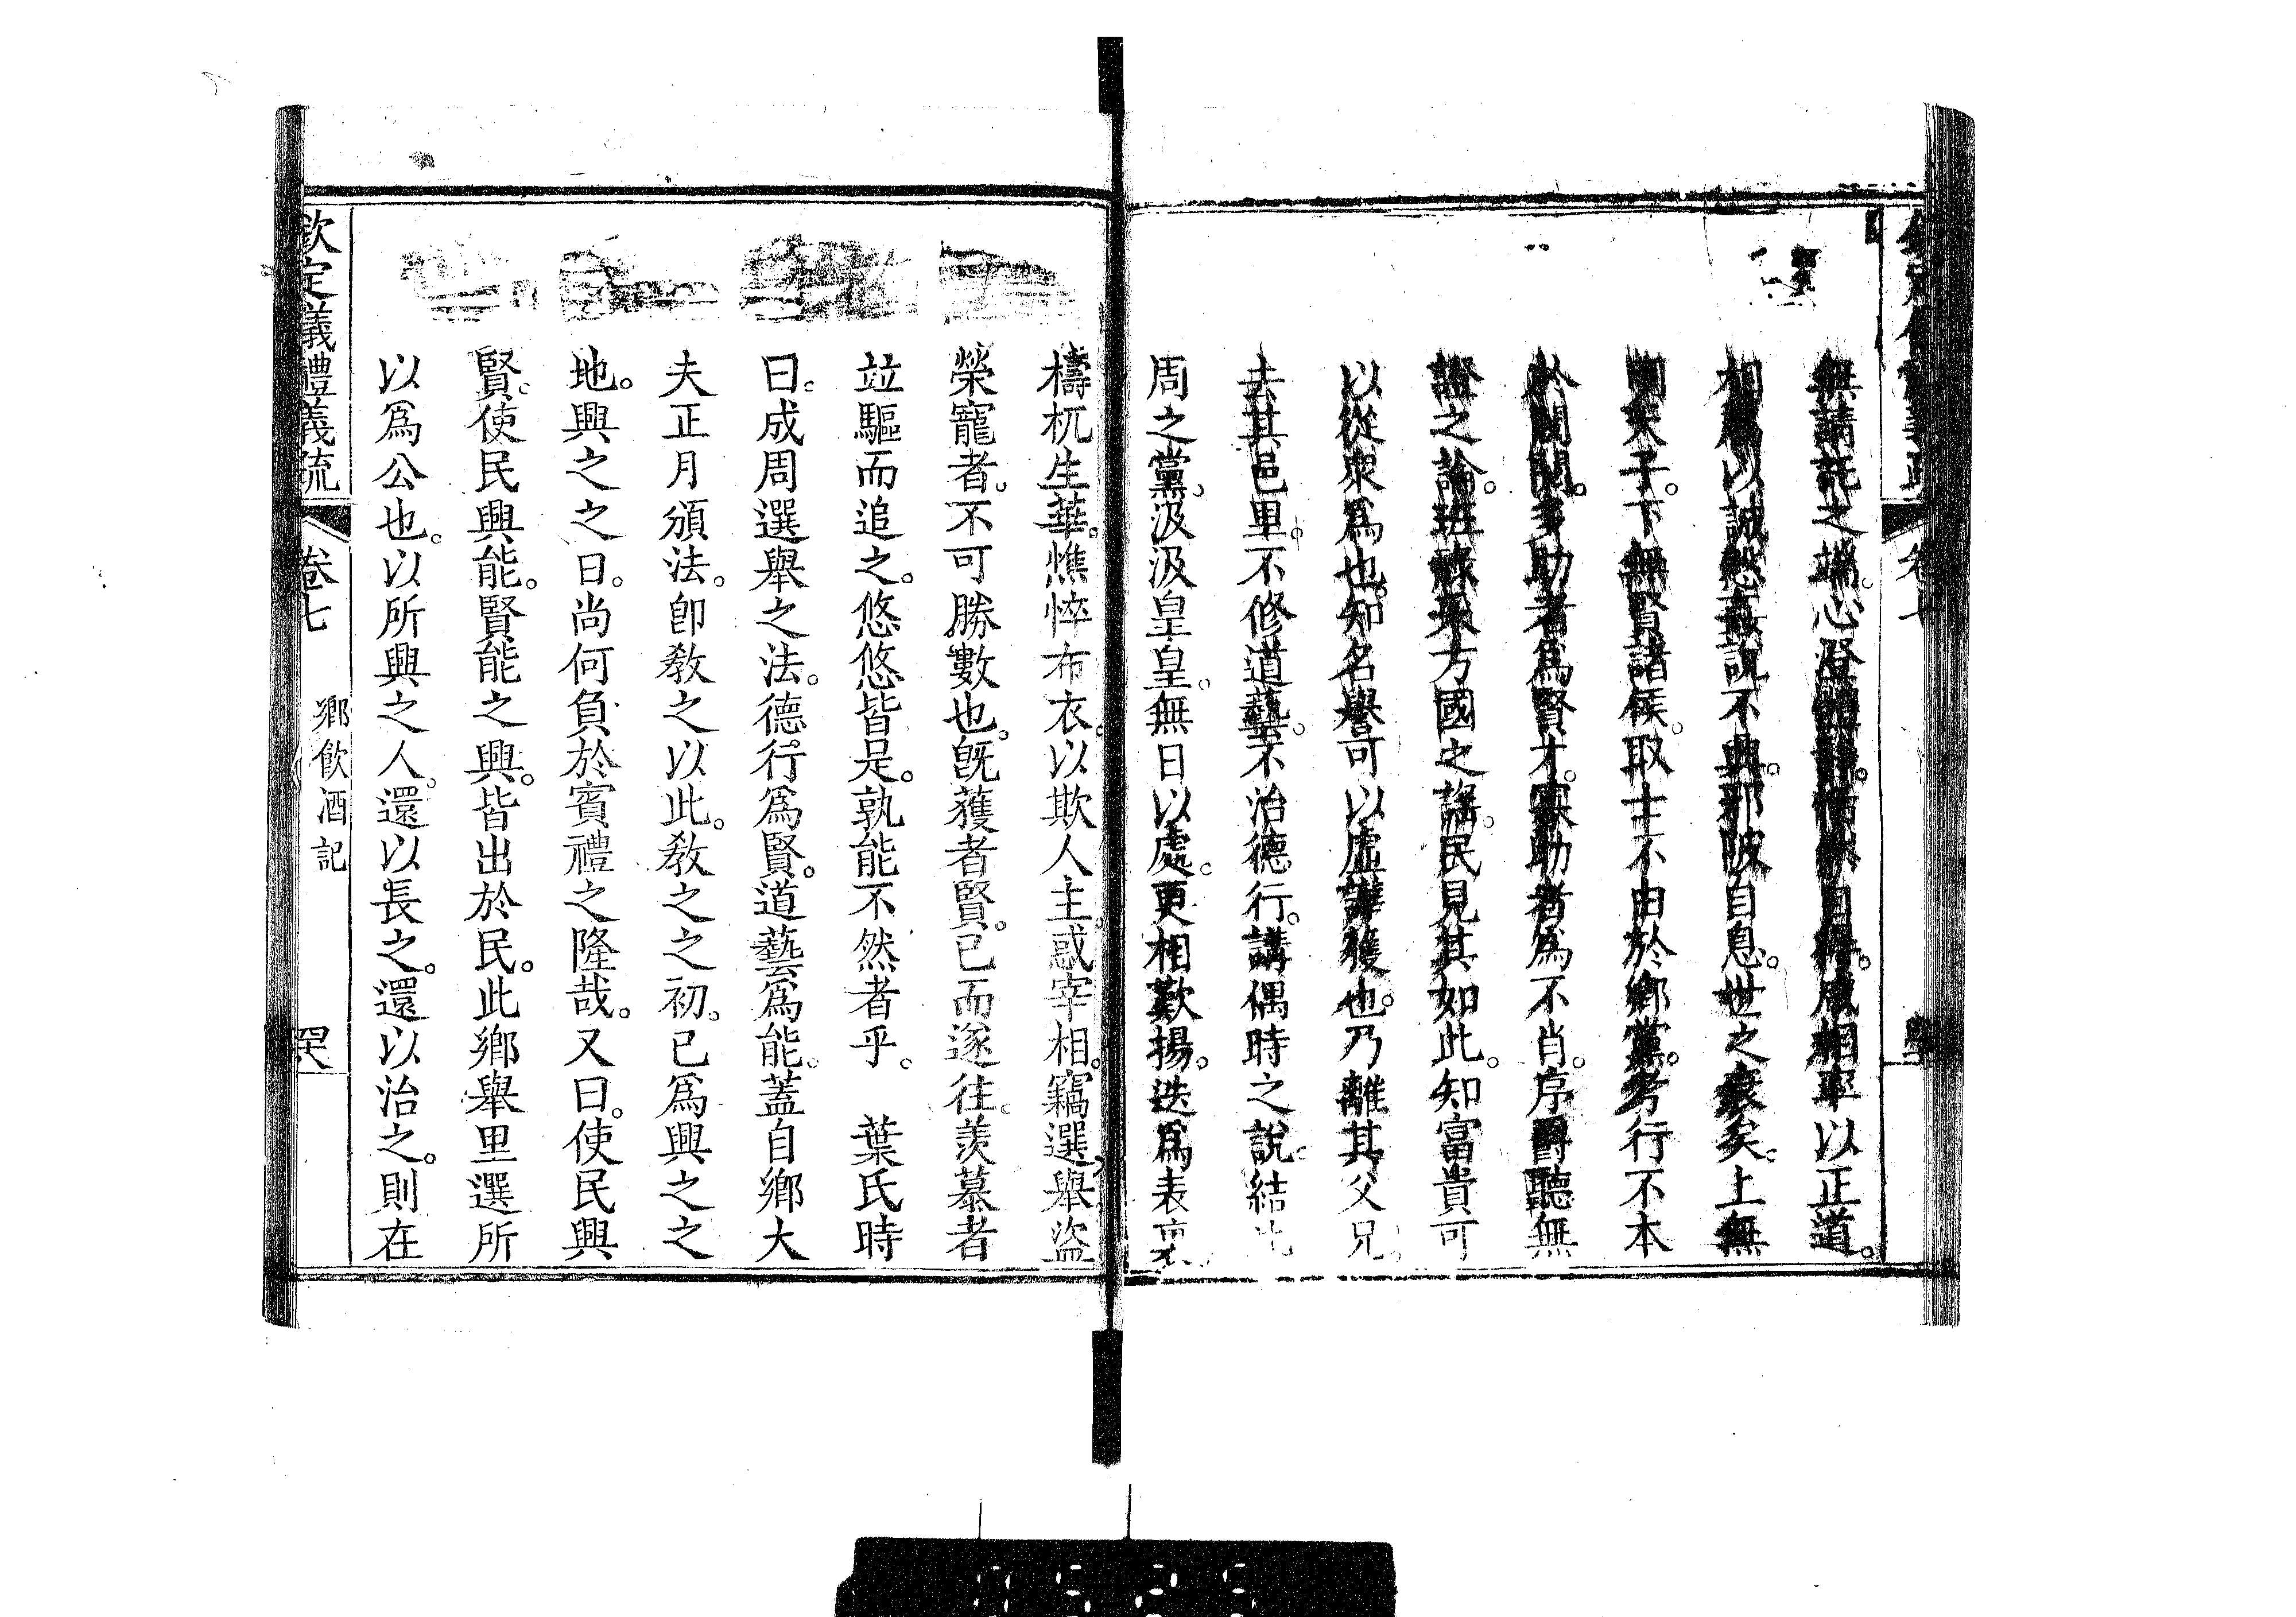 欽定儀禮義疏 卷七
無請託之端。心澄體靜。恬然自得。咸相率以正道。
相厲以誠慤。姦說不興。邪陂自息。世之衰矣。上無
明天子。下無賢諸侯。取士不由於鄉黨。考行不本
於閥閱。多助者爲賢才。寡助者爲不肖。序爵聽無
證之論。班祿采方國之謠。民見其如此。知富貴可
以從衆爲也。知名譽可以虛譁獲也。乃離其父兄。
去其邑里。不修道藝。不治德行。講偶時之說。結比
周之黨。汲汲皇皇。無日以處。更相歎揚。迭爲表裏。
檮杌生華。憔悴布衣。以欺人主。惑宰相。竊選舉。盜
榮寵者。不可勝數也。旣獲者賢。已而遂往。羨慕者
竝驅而追之。悠悠皆是。孰能不然者乎。 葉氏時
曰。成周選舉之法。德行爲賢。道藝爲能。蓋自鄉大
夫正月頒法。卽敎之以此。敎之之初。已爲興之之
地。興之之日。尚何負於賓禮之隆哉。又曰。使民興
賢。使民興能。賢能之興。皆出於民。此鄉舉里選所
以爲公也。以所興之人。還以長之。還以治之。則在
欽定儀禮義疏 卷七 鄉飲酒記 罕